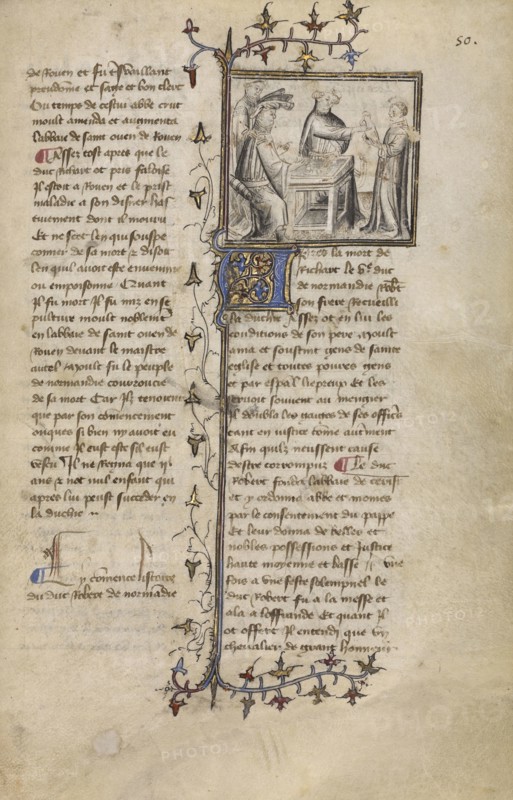 50.
de Rouen et fu tres vaillant
preudomme et sage et bon clerc
Ou temps de cestui abbe crut
moult amenda et augmenta
labbaie de saint ouen de Rouen
Assez tost apres que le
duc Richart ot pris faloise
Il estoit a Rouen et le prist
maladie a son disner has
tivement dont il mouru
Et ne scet len qui souspe
conner de sa mort et disoit
len quil avoit este envenime
ou empoisonne Quant
Il fu mort Il fu mis en se
pulture moult noblement
en labbaie de saint ouen de
Rouen devant le maistre
autel Moult fu le peuple
de normandie courroucie
de sa mort Car Ilz tenoient
que par son commencement
onques si bien ny avoit eu
comme Il eust este sil eust
vescu Il ne regna que ij
ans et not nul enfant qui
apres lui peust succeder en
la duchie
Cy commence listoire
du duc Robert de normandie
Apres la mort de
Richart le duc
de normandie Robert
son frere Recueilli
la duchie Assez ot en lui les
conditions de son pere Moult
ama et soustint gens de sainte
eglise et toutes povres gens
et par especial lepreux Et les
servoit souvent au mengier
Il doubla les gaiges de ses offici
ers tant en justice comme autrement
Afin quilz neussent cause
destre corrompuz Le duc
Robert fonda labbaie de
et y ordonna abbe et moines
par le consentement du pappe
Et leur donna de belles et
nobles possessions et Justice
haulte moyenne et basse Une
fois a une feste solempnel le
duc Robert fu a la messe et
ala a loffrande Et quant Il
ot offert Il entendi que un
chevalier de grant
PHOTO12